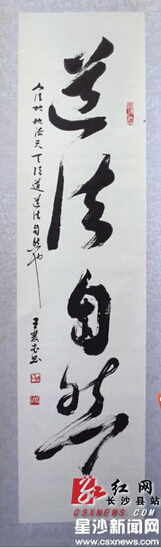 道法自然
人法地地法天天法道道法自然
红网
长沙县站
星沙新闻网
www.csxnews.com